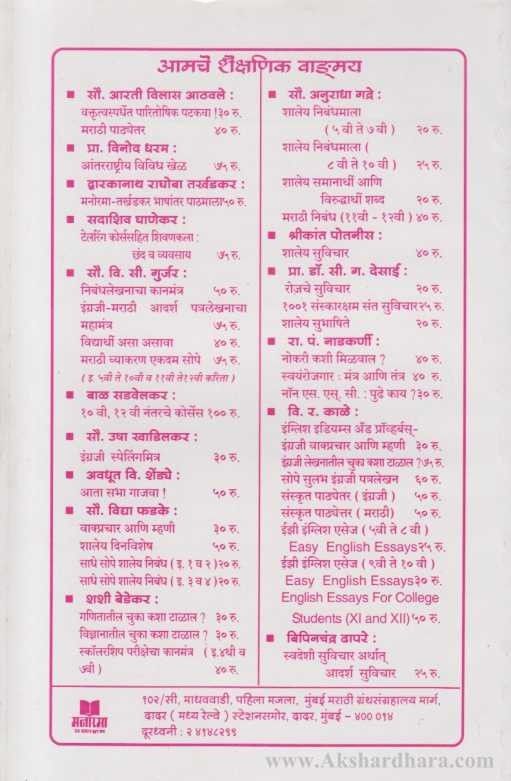 आमचे शैक्षणिक वाङ्मय
■ सौ. आरती विलास आठवले :
वक्तृत्वस्पर्धेत पारितोषिक पटकवा !३० रु.
मराठी पाठ्येतर ४० रु.
■ प्रा. विनोद धरम :
आंतरराष्ट्रीय विविध खेळ ७५ रु.
■ द्वारकानाथ राघोबा तर्खडकर :
मनोरमा-तर्खडकर भाषांतर पाठमाला५० रु.
■ सदाशिव घाणेकर :
टेलरिंग कोर्ससहित शिवणकला :
छंद व व्यवसाय ७५ रु.
■ सौ. वि. सी. गुर्जर :
निबंधलेखनाचा कानमंत्र ५० रु.
इंग्रजी-मराठी आदर्श पत्रलेखनाचा
महामंत्र ७५ रु.
विद्यार्थी असा असावा ४० रु.
मराठी व्याकरण एकदम सोपे ७५ रु.
( इ. ५वी ते १०वी व ११वी ते१२वी करिता )
■ बाळ सडवेलकर :
१० वी, १२ वी नंतरचे कोर्सेस १०० रु.
■ सौ. उषा खाडिलकर :
इंग्रजी स्पेलिंगमित्र ३० रु.
■ अवधूत वि. शेंड्ये :
आता सभा गाजवा ! ५० रु.
■ सौ. विद्या फडके :
वाक्प्रचार आणि म्हणी ३० रु.
शालेय दिनविशेष ५० रु.
साधे सोपे शालेय निबंध ( इ. १ व २ )२० रु.
साधे सोपे शालेय निबंध ( इ. ३ व ४ )२० रु.
■ शशी बेडेकर :
गणितातील चुका कशा टाळाल ? ३० रु.
विज्ञानातील चुका कशा टाळाल ? ३० रु.
स्कॉलरशिप परीक्षेचा कानमंत्र ( इ.४थी व
७वी ) ४० रु.
■ सौ. अनुराधा गद्रे :
शालेय निबंधमाला
( ५ वी ते ७ वी ) २० रु.
शालेय निबंधमाला (
८ वी ते १० वी ) २५ रु.
शालेय समानार्थी आणि
विरुद्धार्थी शब्द २० रु.
मराठी निबंध (११वी - १२वी ) ४० रु.
■ श्रीकांत पोतनीस :
शालेय सुविचार ४० रु.
■ प्रा. डॉ. सी. ग. देसाई :
रोजचे सुविचार २० रु.
१००१ संस्कारक्षम संत सुविचार२५ रु.
शालेय सुभाषिते २० रु.
■ रा. पं. नाडकर्णी :
नोकरी कशी मिळवाल ? ४० रु.
स्वयंरोजगार : मंत्र आणि तंत्र ४० रु.
नॉन एस. एस. सी. : पुढे काय ?३० रु.
■ वि. र. काळे :
इंग्लिश इडियम्स अँड प्रॉव्हर्बस्-
इंग्रजी वाक्प्रचार आणि म्हणी ३० रु.
इंग्रजी लेखनातील चुका कशा टाळाल ?७५ रु.
सोपे सुलभ इंग्रजी पत्रलेखन ६० रु.
संस्कृत पाठ्येतर ( इंग्रजी ) ५० रु.
संस्कृत पाठ्येत्तर ( मराठी ) ५० रु.
ईझी इंग्लिश एसेज ( ५वी ते ८ वी )
Easy English Essays२५ रु.
ईझी इंग्लिश एसेज ( ९वी ते १० वी )
Easy English Essays३० रु.
English Essays For College
Students (XI and XII)५० रु.
■ बिपिनचंद्र ढापरे :
स्वदेशी सुविचार अर्थात्
आदर्श सुविचार २५ रु.
मनोरमा
१०२/सी, माधववाडी, पहिला मजला, मुंबई मराठी ग्रंथसंग्रहालय मार्ग,
दादर ( मध्य रेल्वे ) स्टेशनसमोर, दादर, मुंबई - ४०० ०१४
दूरध्वनी : २ ४१४८२९९
www.Akshardhara.com